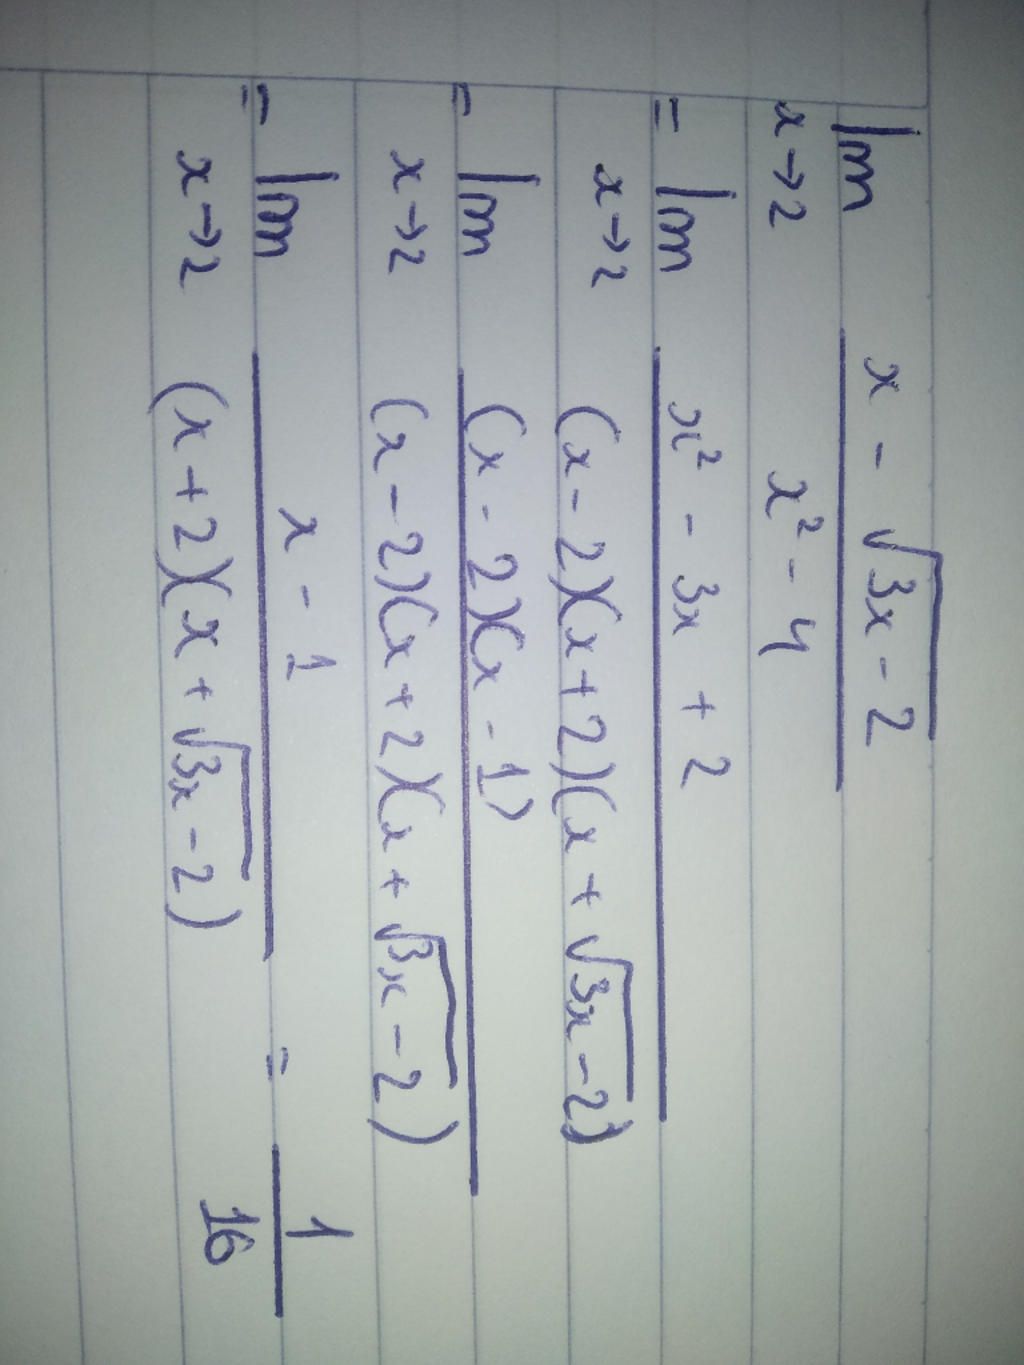 lim x - √(3x - 2)
x→2 x² - 4
= lim x² - 3x + 2
x→2 (x - 2)(x + 2)(x + √(3x - 2))
= lim (x - 2)(x - 1)
x→2 (x - 2)(x + 2)(x + √(3x - 2))
= lim x - 1 = 1
x→2 (x + 2)(x + √(3x - 2)) 16